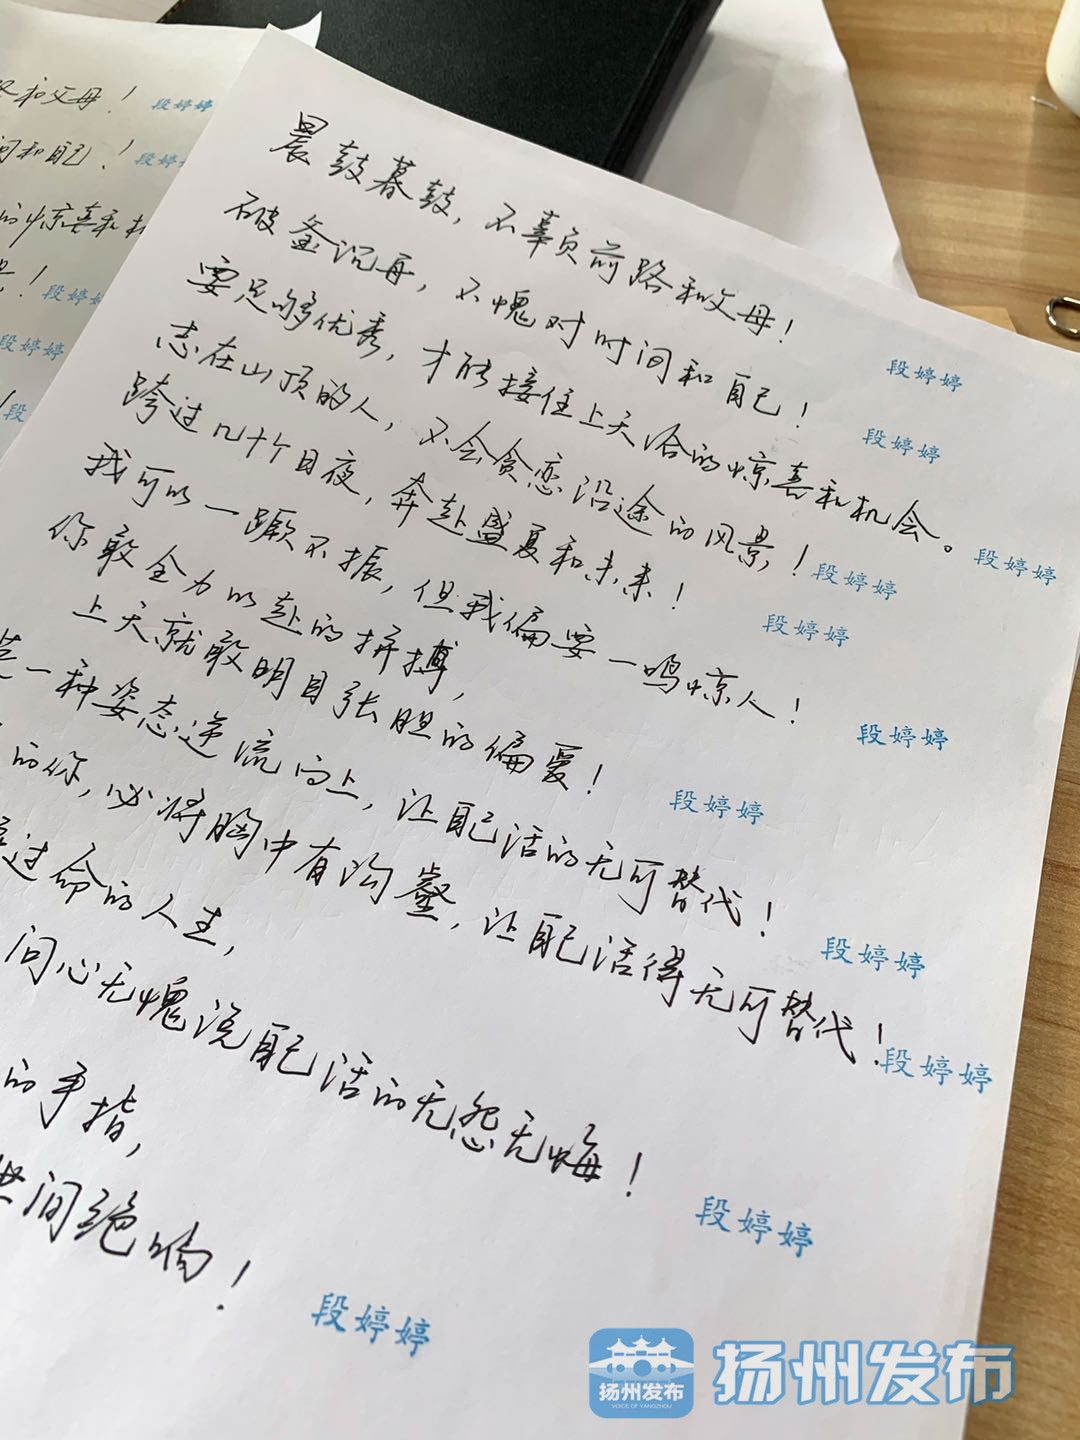 和父母！ 段婷婷
间和自己！ 段婷
的惊喜和机
！ 段婷
段婷婷
！段
晨鼓暮鼓，不辜负前路和父母！
段婷婷
破釜沉舟，不愧对时间和自己！
段婷婷
要足够优秀，才能接住上天给的惊喜和机会。
段婷婷
志在山顶的人，不会贪恋沿途的风景！
段婷婷
跨过几十个日夜，奔赴盛夏和未来！
段婷婷
我可以一蹶不振，但我偏要一鸣惊人！
段婷婷
你敢全力以赴的拼搏，
上天就敢明目张胆的偏爱！
段婷婷
一种姿态逆流向上，让自己活的无可替代！
段婷婷
的你，必将胸中有沟壑，让自己活得无可替代！
段婷婷
过命的人生，
问心无愧说自己活的无怨无悔！
段婷婷
的手指，
间绝响！
段婷婷
扬州发布
VOICE OF YANGZHOU
扬州发布